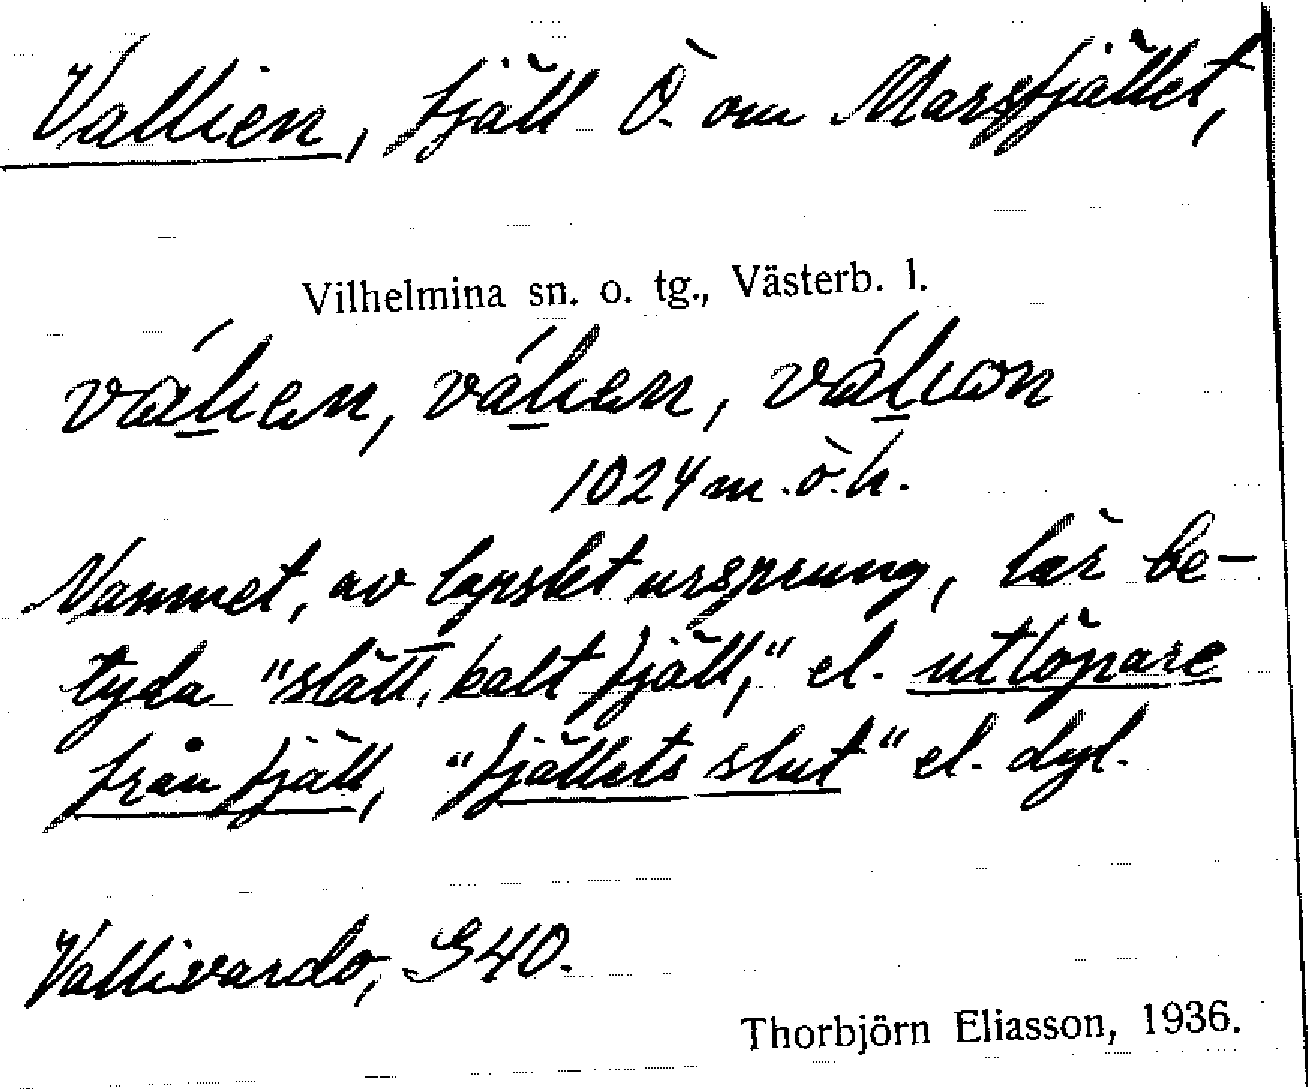 Vallien, fjäll Ö. om Marsfjället,
Vilhelmina sn. o. tg., Västerb. l.
1024 m. ö. h.
Namnet, av lapskt ursprung, lär be-
tyda "slätt, kalt fjäll," el. utlöpare
från fjäll, "fjällets slut" el. dyl.
Vallivardo, G40.
Thorbjörn Eliasson, 1936.